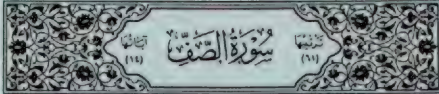 ترتيبها (٦١) سُورَةُ الصَّفِّ آياتها (١٤)